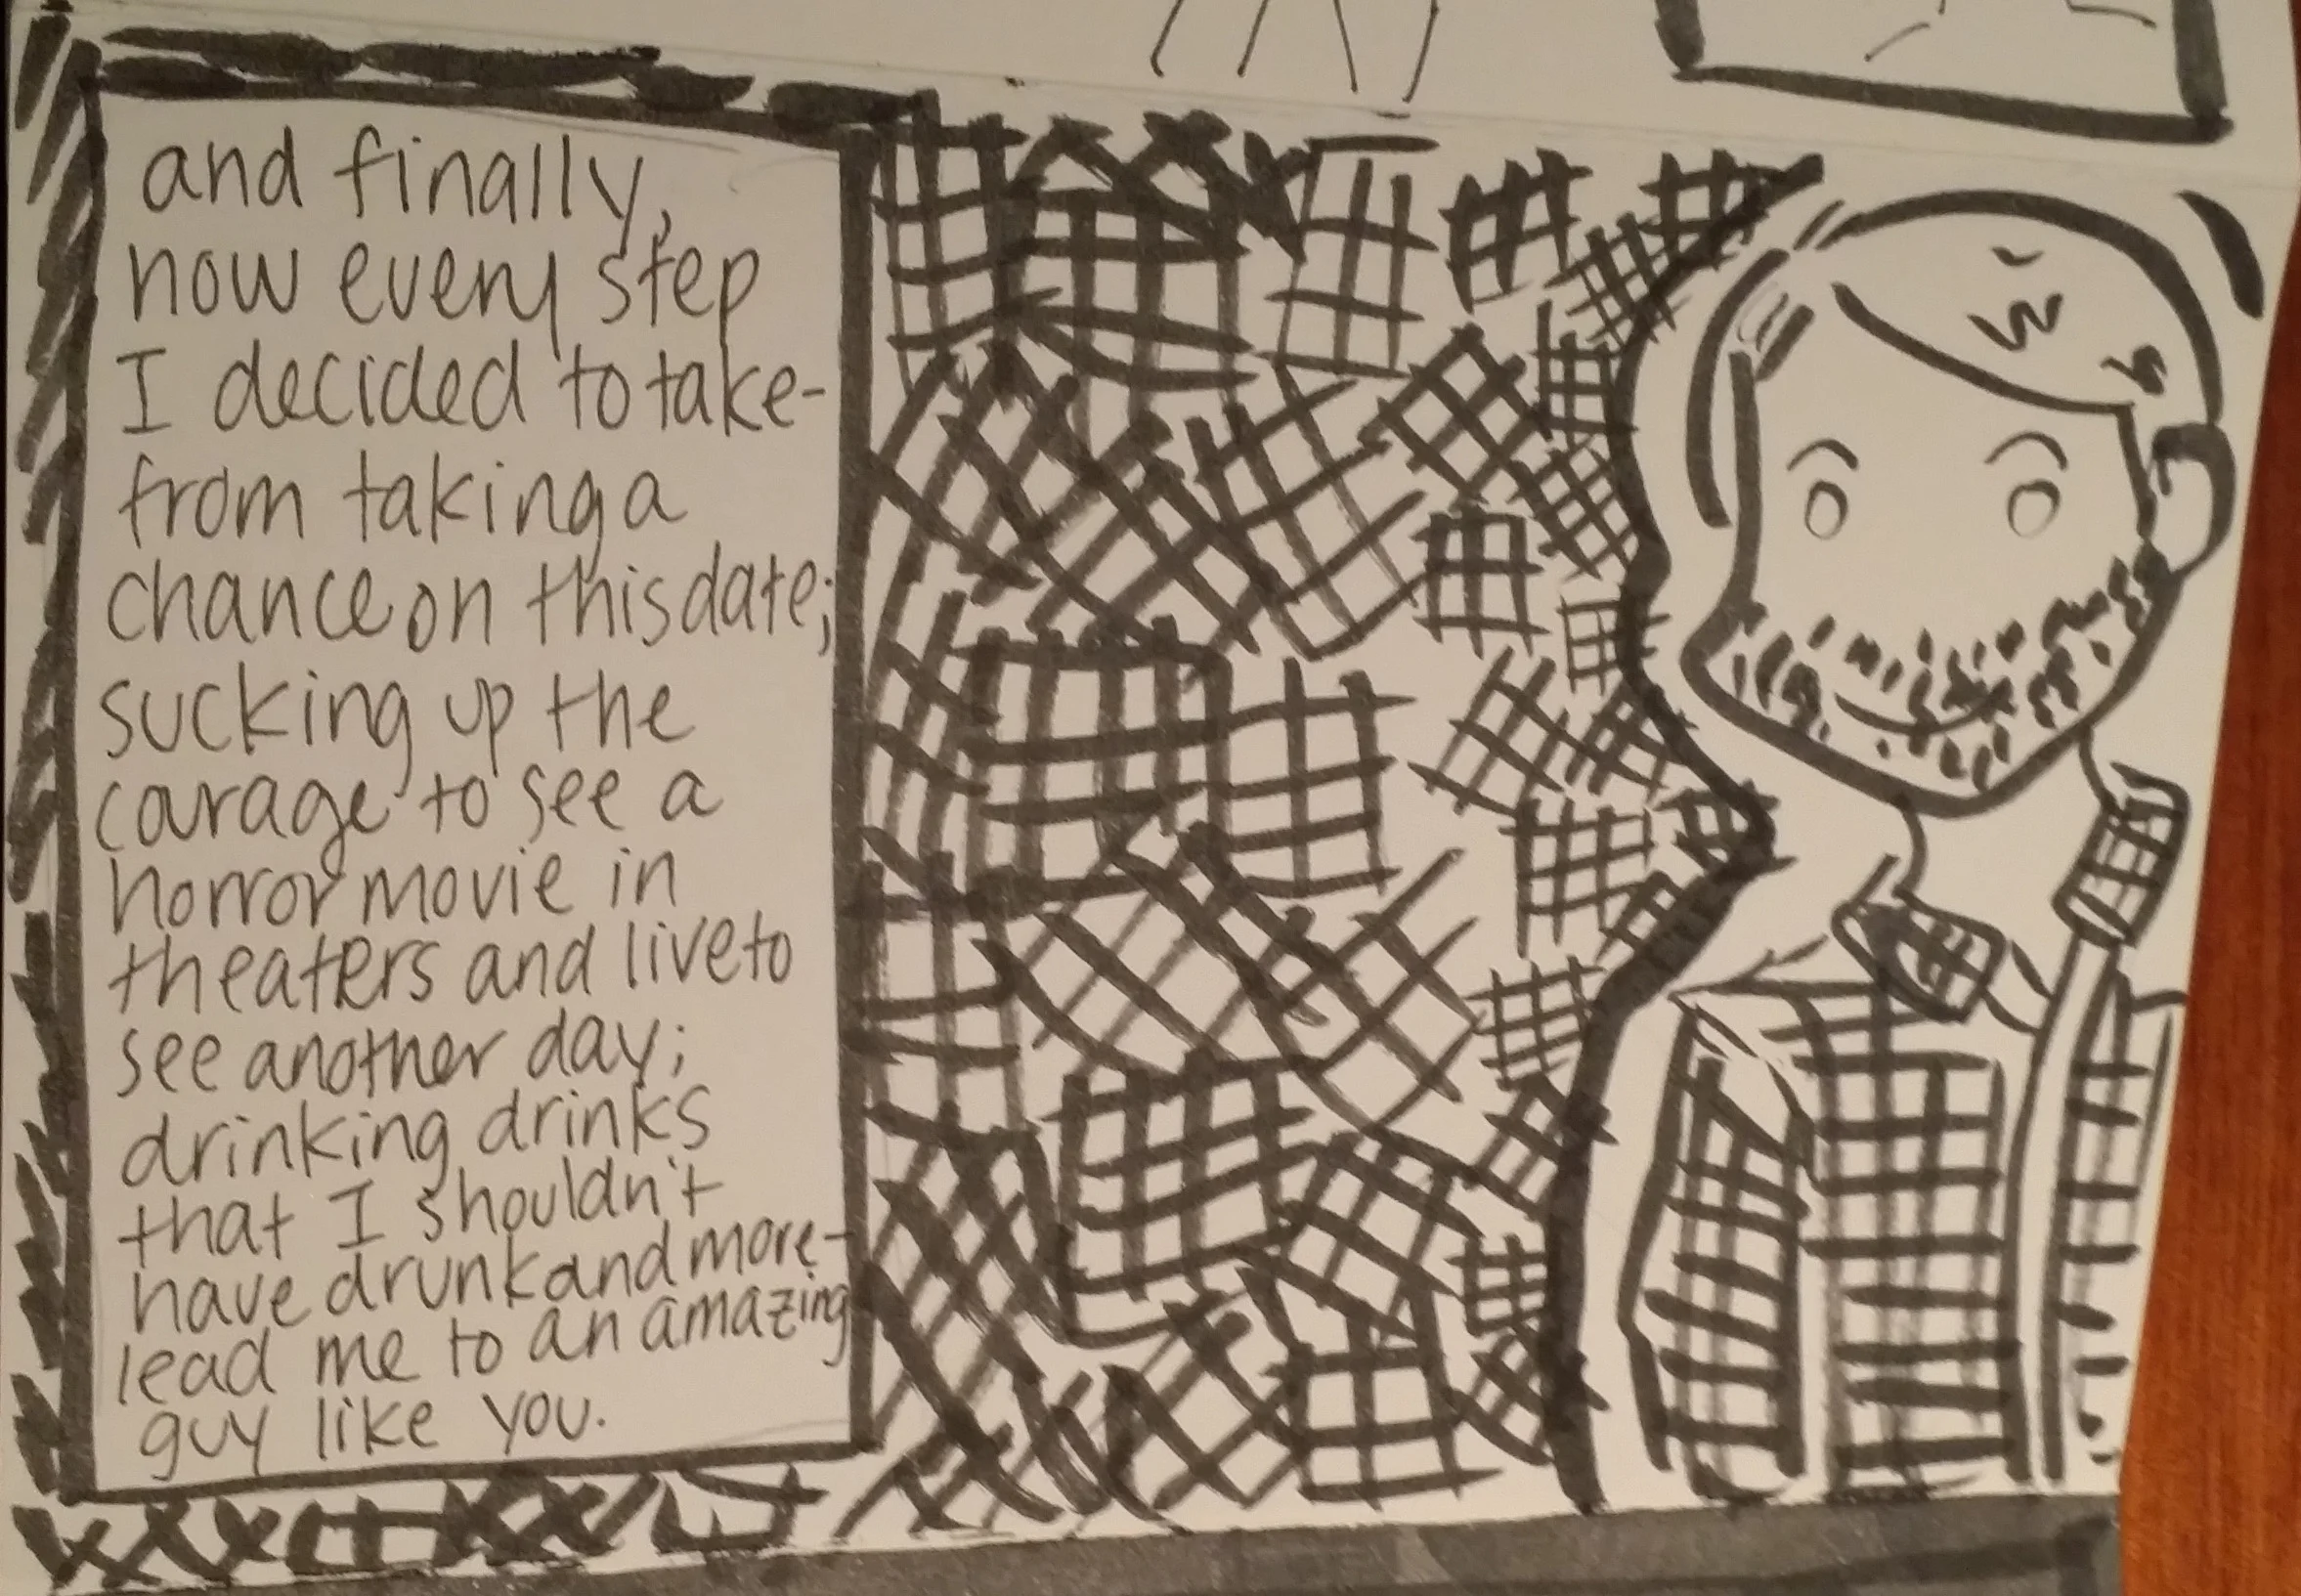 and finally,
how every step
I decided to take-
from taking a
chance on this date;
sucking up the
courage to see a
horror movie in
theaters and live to
see another day;
drinking drinks
that I shouldn't
have drunk and more-
lead me to an amazing
guy like you.